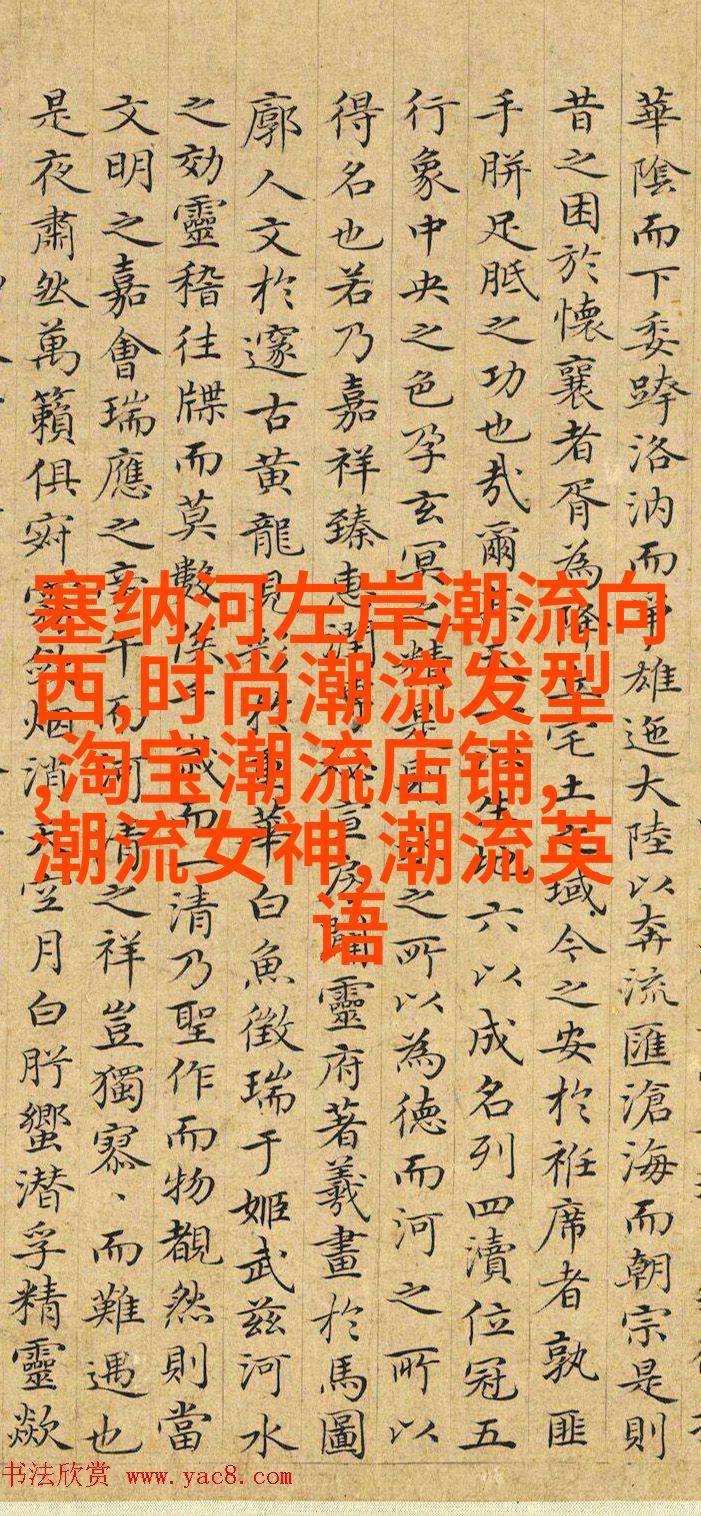 華陰而下委跨洛汭而爭雄迤大陸以奔流匯滄海而朝宗是則
昔之困於懷襄者胥為降丘宅土之域今之安於袵席者孰匪
手胼足胝之功也哉爾天一生地六以成名列四瀆位冠五
行象中央之色孕玄冥之精是則之所以為德而河之所以
得名也若乃嘉祥臻惠潤宣房闢靈府著羲畫於馬圖
廓人文於邃古黃龍見彩於重華白魚徵瑞于姬武茲河水
之効靈稽往牒而莫數俟千歲而一清乃聖作而物覩然則當
文明之嘉會瑞應之旁午而河清之祥豈獨寡、而難遇也
是夜肅然萬籟俱寂烟消天空月白肸蠁潛孚精靈歘
塞纳河左岸潮流向
西,时尚潮流发型
,淘宝潮流店铺,
潮流女神,潮流英
语
书法欣赏 www.yac8.com